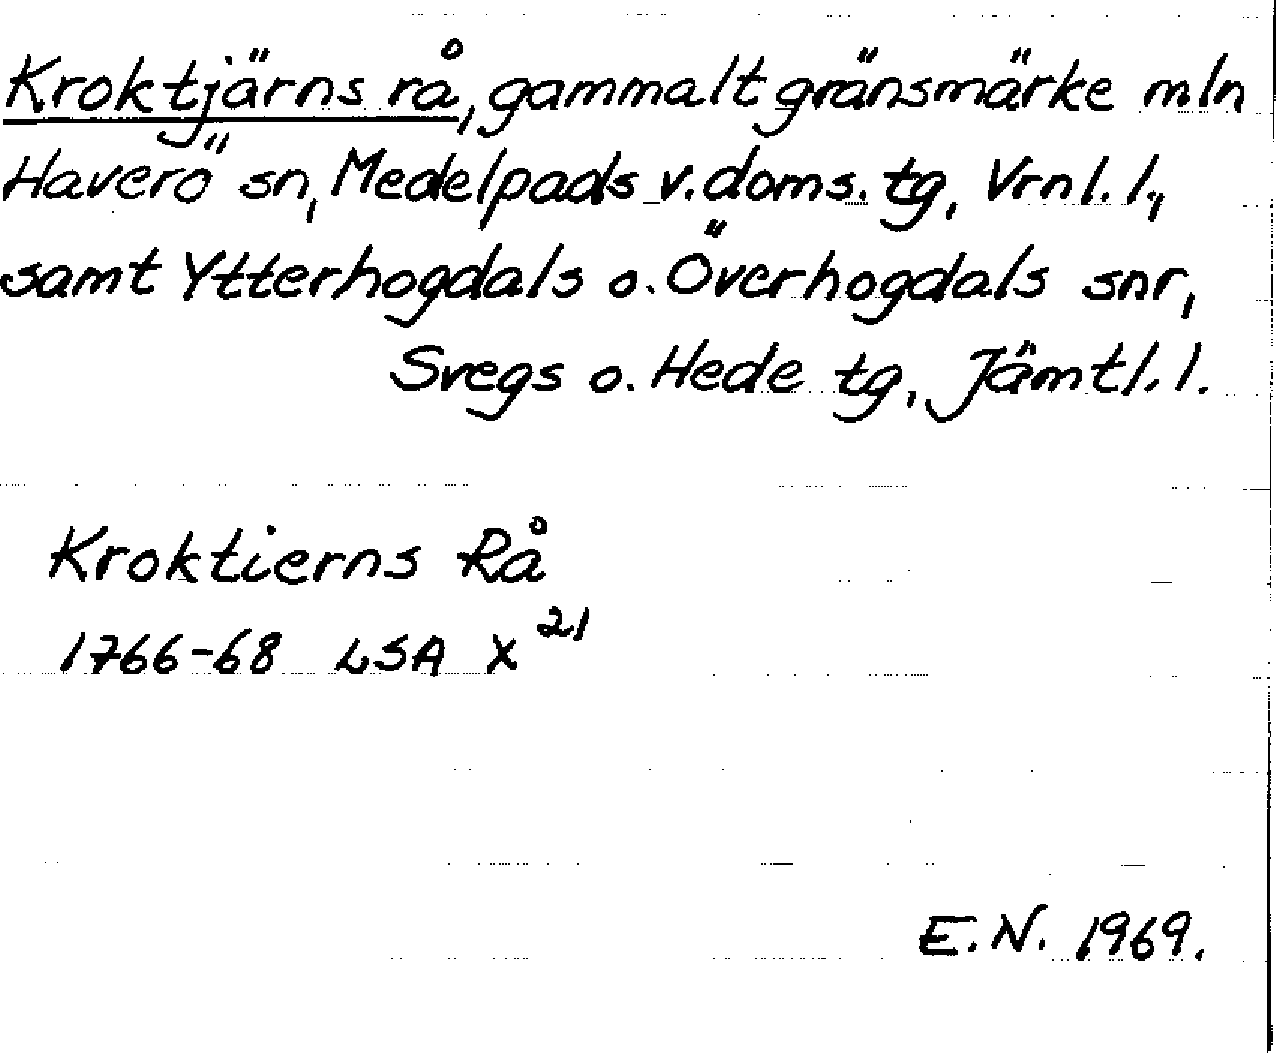 Kroktjärns rå, gammalt gränsmärke mln
Haverö sn, Medelpads v. doms. tg, Vrnl. l.,
samt Ytterhogdals o. Överhogdals snr,
Svegs o. Hede tg, Jämtl. l.
Kroktierns Rå
1766-68 LSA X²¹
E. N. 1969.